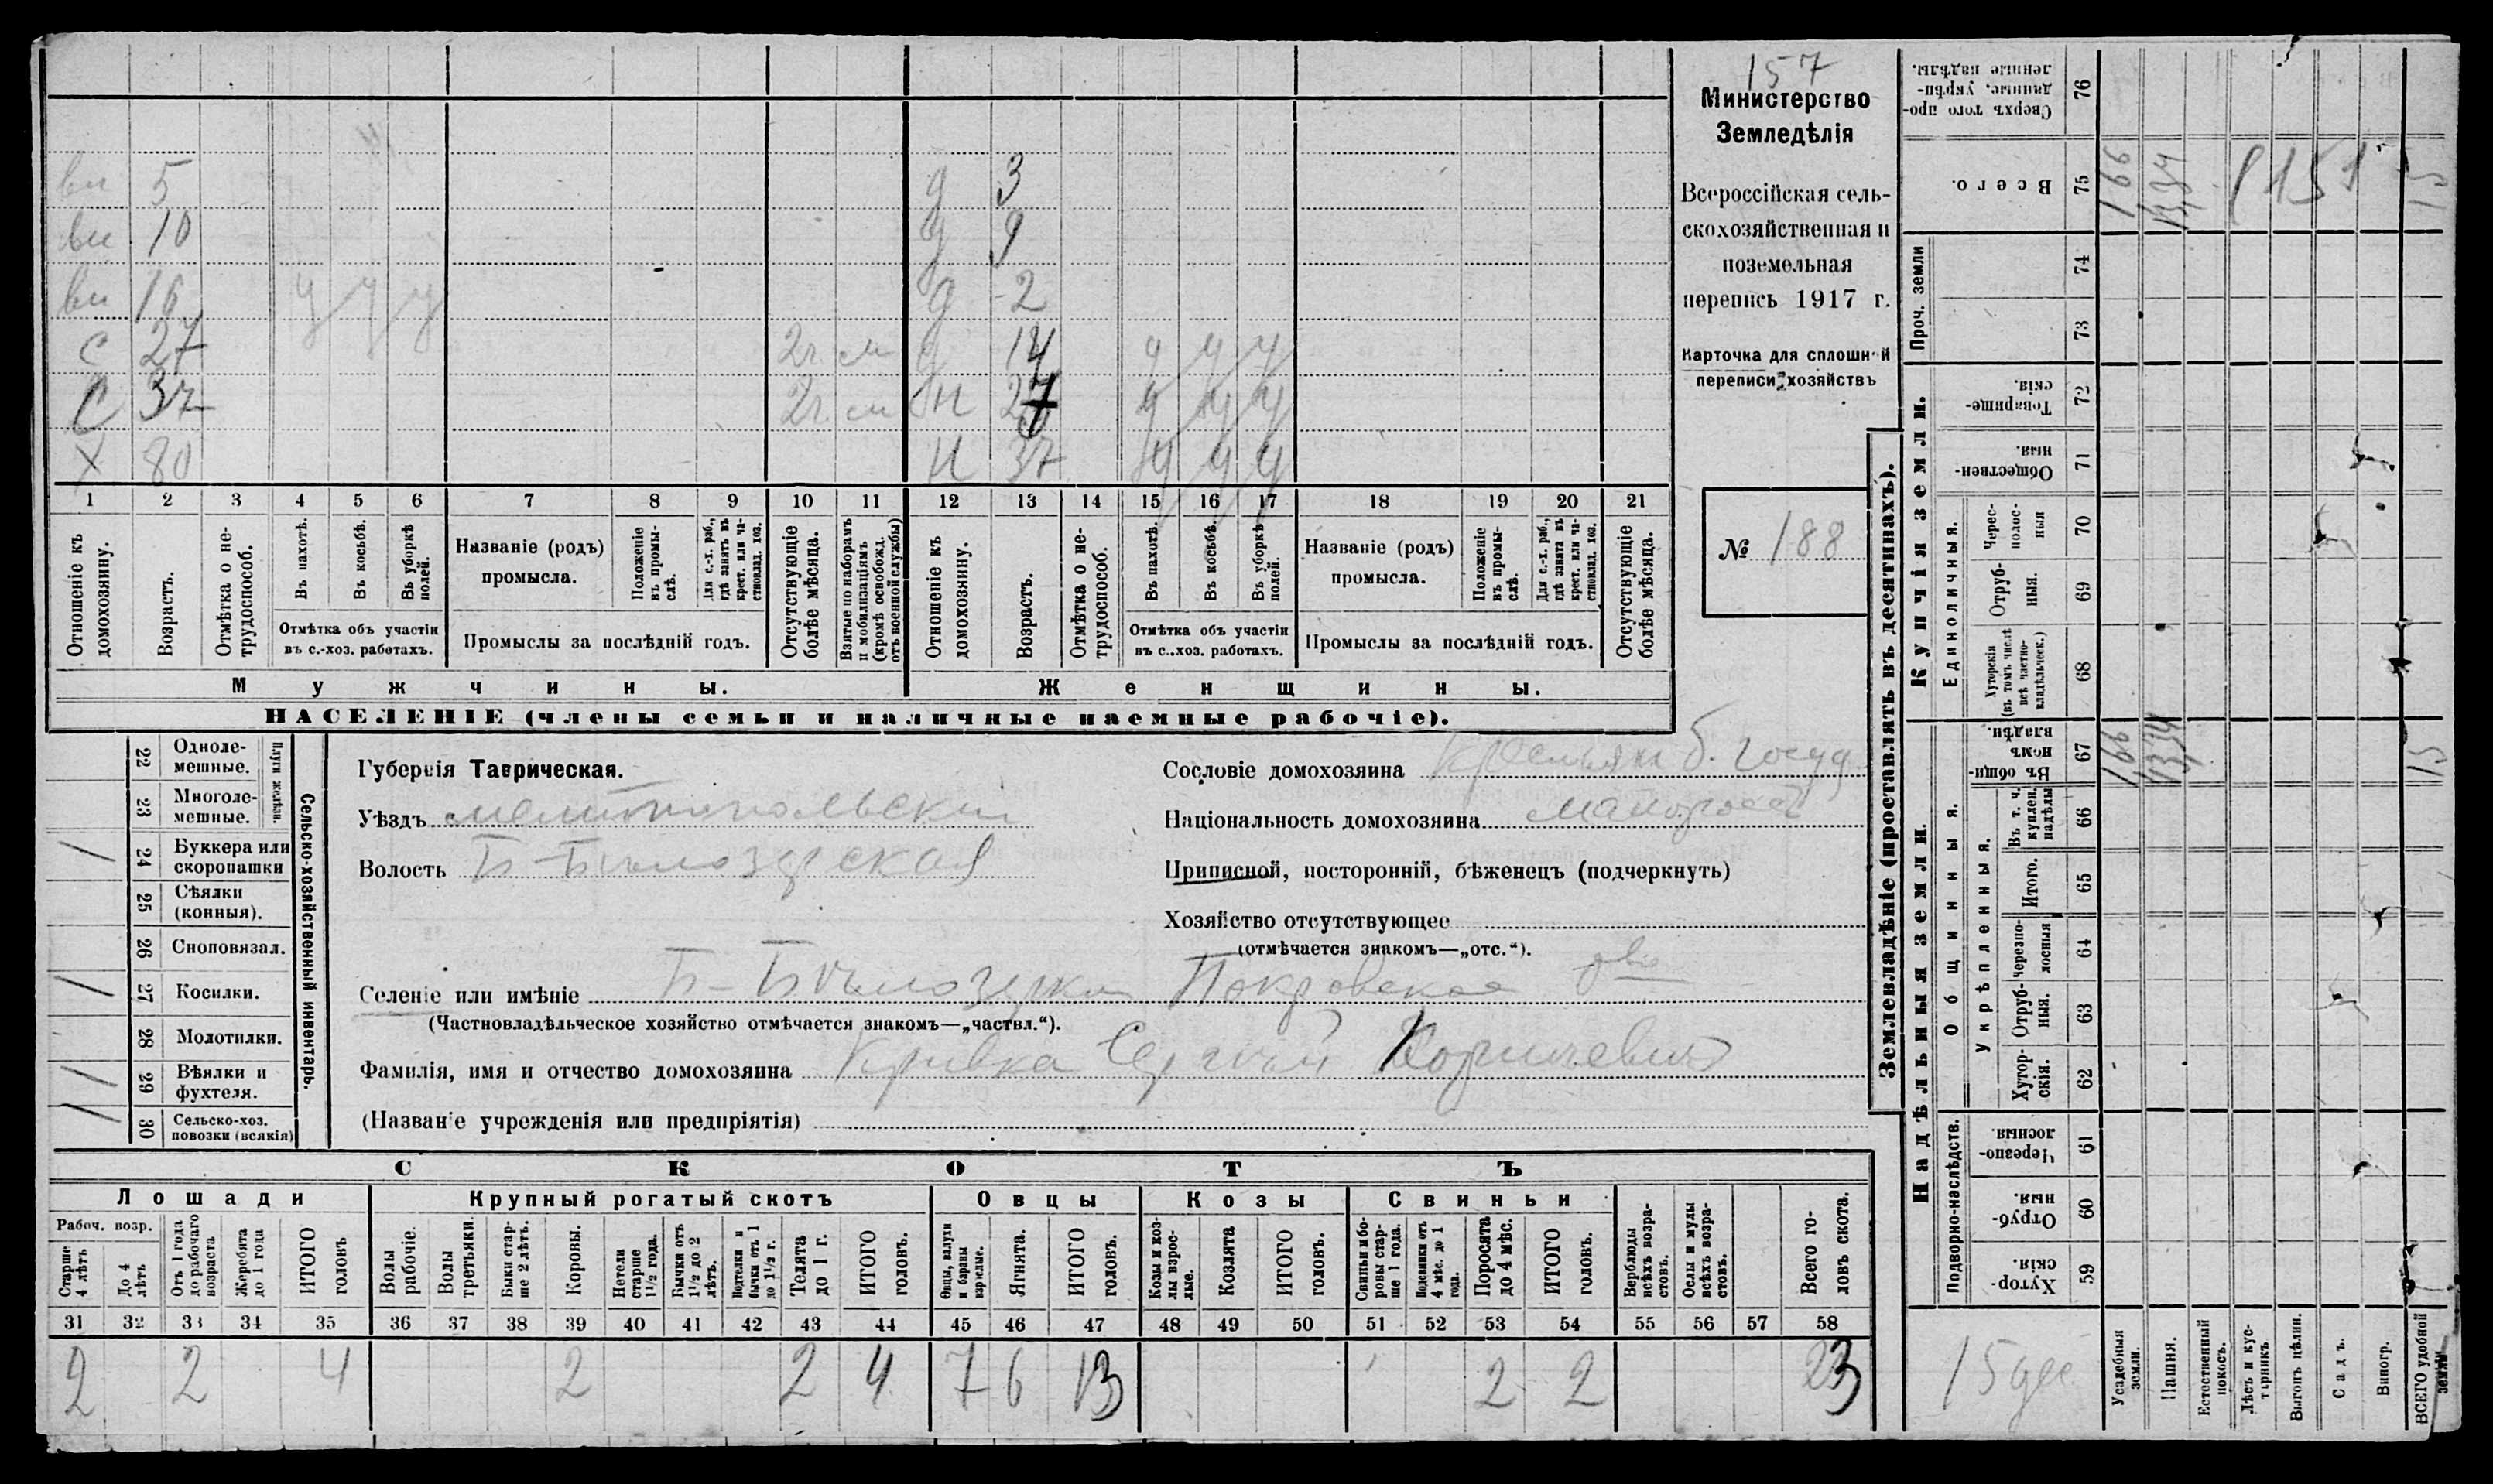 157
Министерство
Земледѣлія
Всероссійская сель-
скохозяйственная и
поземельная
перепись 1917 г.
Карточка для сплошной
переписи хозяйствъ
№ 188
вн 5 д 3
вн 10 д 9
вн 16 у у у д 2
с 27 2г. см д 14 у у у
с 37 2г. см н 27 у у у
х 80 н 37 у у у
1 2 3 4 5 6 7 8 9 10 11 12 13 14 15 16 17 18 19 20 21
Отношеніе къ домохозяину.
Возрастъ.
Отмѣтка о не-трудоспособ.
Въ пахотѣ.
Въ косьбѣ.
Въ уборкѣ полей.
Отмѣтка объ участіи
въ с.-хоз. работахъ.
Названіе (родъ)
промысла.
Положеніе въ промы-слѣ.
Для с.-х. раб., гдѣ занятъ въ крест. или ча-стновлад. хоз.
Промыслы за послѣдній годъ.
Отсутствующіе болѣе мѣсяца.
Взятые по наборамъ и мобилизаціямъ (кромѣ освобожд. отъ военной службы)
Отношеніе къ домохозяину.
Возрастъ.
Отмѣтка о не-трудоспособ.
Въ пахотѣ.
Въ косьбѣ.
Въ уборкѣ полей.
Отмѣтка объ участіи
въ с..хоз. работахъ.
Названіе (родъ)
промысла.
Положеніе въ промы-слѣ.
Для с.-х. раб., гдѣ занята въ крест. или ча-стновлад. хоз.
Промыслы за послѣдній годъ.
Отсутствующіе болѣе мѣсяца.
Мужчины. Женщины.
НАСЕЛЕНІЕ (члены семьи и наличные наемные рабочіе).
Сельско-хозяйственный инвентарь.
Плуги желѣзн.
22 Одноле-мешные.
23 Многоле-мешные.
/ 24 Буккера или скоропашки
25 Сѣялки (конныя).
26 Сноповязал.
/ 27 Косилки.
28 Молотилки.
/ 29 Вѣялки и фухтеля.
/ 30 Сельско-хоз. повозки (всякія)
Губернія Таврическая.
Уѣздъ Мелитопольскій
Волость Б-Бѣлозерская
Сословіе домохозяина Крестьян б. госуд.
Національность домохозяина малоросс
Приписной, посторонній, бѣженецъ (подчеркнуть)
Хозяйство отсутствующее
(отмѣчается знакомъ—„отс.“).
Селеніе или имѣніе Б-Бѣлозерка Покровское о-во
(Частновладѣльческое хозяйство отмѣчается знакомъ—„частвл.“).
Фамилія, имя и отчество домохозяина Кривка Сергѣй
(Названіе учрежденія или предпріятія)
СКОТЪ
Лошади Крупный рогатый скотъ Овцы Козы Свиньи
Рабоч. возр.
Старше 4 лѣтъ
До 4 лѣтъ
Отъ 1 года до рабочаго возраста
Жеребята до 1 года
ИТОГО головъ
Волы рабочіе.
Волы третьяки.
Быки стар-ше 2 лѣтъ.
Коровы.
Нетели старше 1½ года.
Бычки отъ 1½ до 2 лѣтъ.
Подтелки и бычки отъ 1 до 1½ г.
Телята до 1 г.
ИТОГО головъ.
Овцы, валухи и бараны взрослые.
Ягнята.
ИТОГО головъ.
Козы и коз-лы взрос-лые.
Козлята
ИТОГО головъ.
Свиньи и бо-ровы стар-ше 1 года.
Подсвинки отъ 4 мѣс. до 1 года.
Поросята до 4 мѣс.
ИТОГО головъ.
Верблюды всѣхъ возра-стовъ.
Ослы и мулы всѣхъ возра-стовъ.
Всего го-ловъ скота.
31 32 33 34 35 36 37 38 39 40 41 42 43 44 45 46 47 48 49 50 51 52 53 54 55 56 57 58
2 2 4 2 2 4 7 6 13 2 2 23
Землевладѣніе (проставлять въ десятинахъ).
Надѣльныя земли.
Купчія земли.
Проч. земли
Подворно-наслѣдств.
Общинныя.
Укрѣпленныя.
Единоличныя.
Сверхъ того про-данные, укрѣп-ленные надѣлы. 76
Всего. 75
74
73
Товарище-скія. 72
Обществен-ныя. 71
Черес-полос-ныя 70
Отруб-ныя. 69
Хуторскія (въ томъ числѣ всѣ частно-владѣльческ.) 68
Въ общи-номъ владѣн. 67
Въ т. ч. куплен. надѣлы 66
Итого. 65
Черезпо-лосныя 64
Отруб-ныя. 63
Хутор-скія. 62
Черезпо-лосныя. 61
Отруб-ныя. 60
Хутор-скія. 59
166 1334 151 15
166 1334 15
15 дес
Усадебныя земли.
Пашня.
Естественный покосъ.
Лѣсъ и кус-тарникъ
Выгонъ цѣлин.
Садъ.
Виногр.
ВСЕГО удобной земли